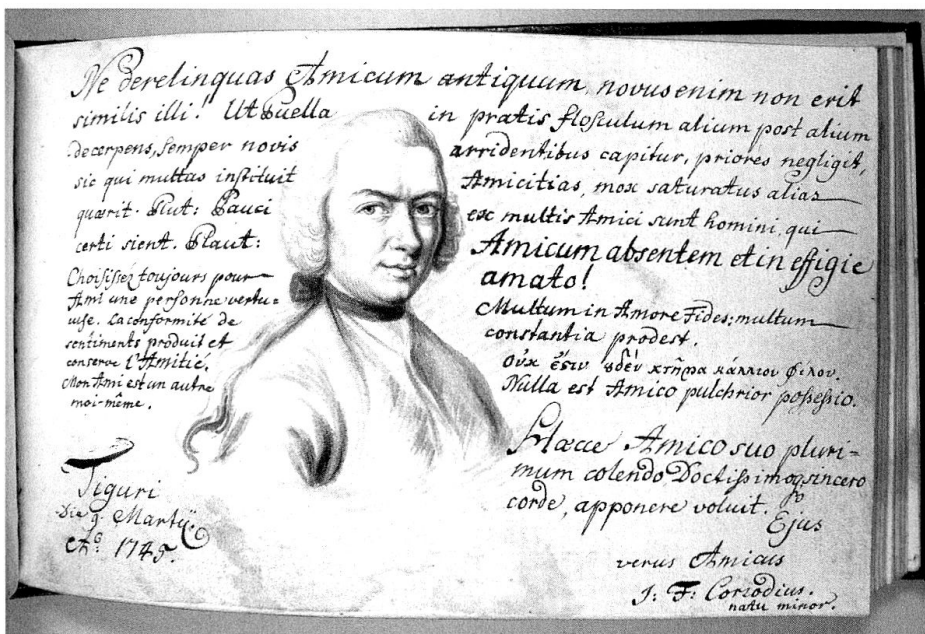 Ne derelinquas Amicum antiquum, novus enim non erit
similis illi! Ut Puella in pratis flosculum alium post alium
decerpens, semper novis arridentibus capitur, priores negligit,
sic qui multas instituit Amicitias, mox saturatus alias
quærit. Plut: Pauci ex multis Amici sunt homini, qui
certi sient. Plaut:
Amicum absentem et in effigie
amato!
Choisissez toujours pour
Ami une personne vertu=
euse. La conformité de
sentiments produit et
conserve l'Amitié.
Mon Ami est un autre
moi-même.
Multum in Amore Fides; multum
constantia prodest.
Οὐκ ἔστιν ȣδὲν κτῆμα κάλλιον φίλου.
Nulla est Amico pulchrior possessio.
Hæcce Amico suo pluri-
mum colendo Doctissimoq; sincero
corde, apponere voluit.
Ejus
verus Amicus
J: F: Corrodius.
natu minor.
Tiguri
Die 9. Martij.
Aº. 1745.